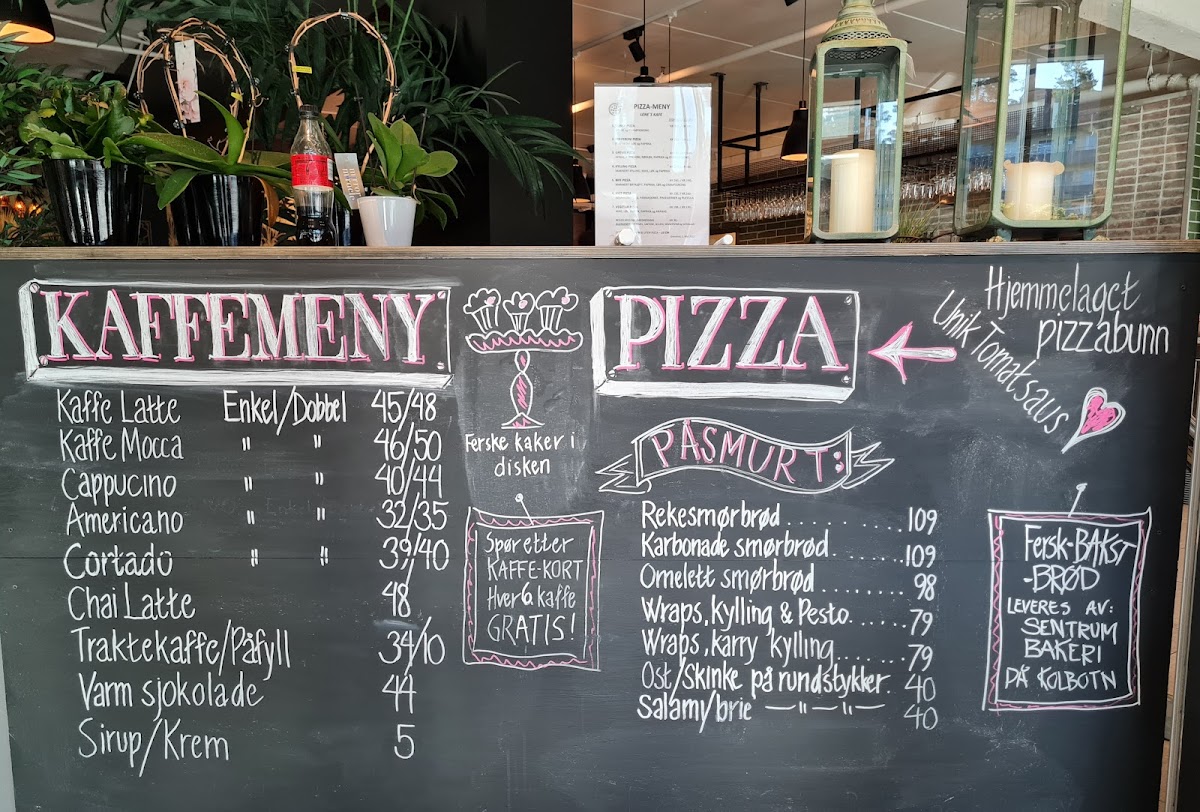 PIZZA-MENY
KAFFEMENY
Kaffe Latte Enkel/Dobbel 45/48
Kaffe Mocca " " 46/50
Cappucino " " 40/44
Americano " " 32/35
Cortado " " 39/40
Chai Latte 48
Traktekaffe/Påfyll 34/10
Varm sjokolade 44
Sirup/Krem 5
Ferske kaker i
disken
Spør etter
KAFFE-KORT
Hver 6. kaffe
GRATIS!
PIZZA
Hjemmelaget
pizzabunn
Unik Tomatsaus
PÅSMURT:
Rekesmørbrød.......... 109
Karbonade smørbrød....... 109
Omelett smørbrød......... 98
Wraps, kylling & Pesto...... 79
Wraps, karry kylling....... 79
Ost/Skinke på rundstykker. 40
Salamy/brie —"—"—"— 40
Fersk-BAKST
-BRØD
LEVERES AV:
SENTRUM
BAKERI
PÅ KOLBOTN